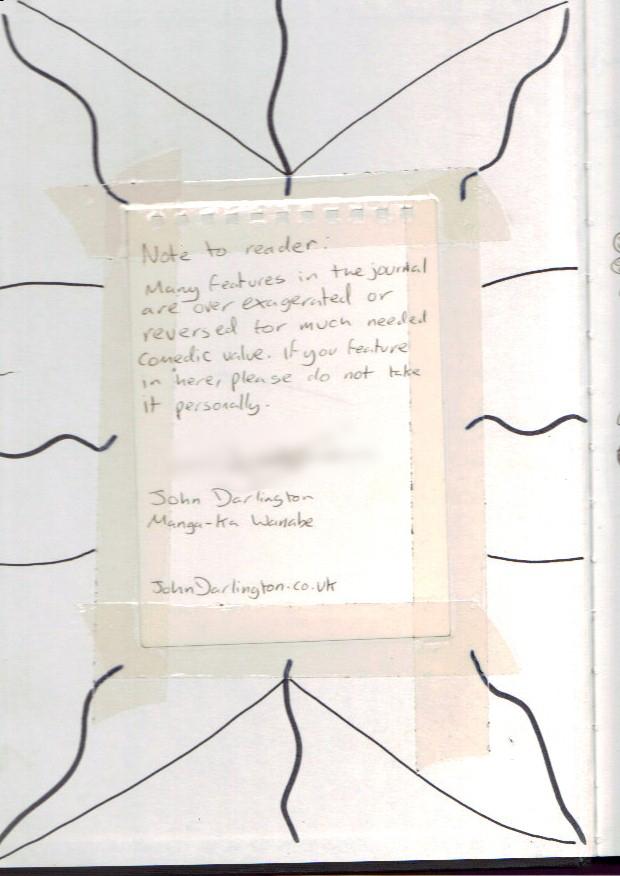 Note to reader:
Many features in the journal
are over exagerated or
reversed for much needed
Comedic value. If you feature
in here, please do not take
it personally.
John Darlington
Manga-Ka Wanabe
JohnDarlington.co.uk